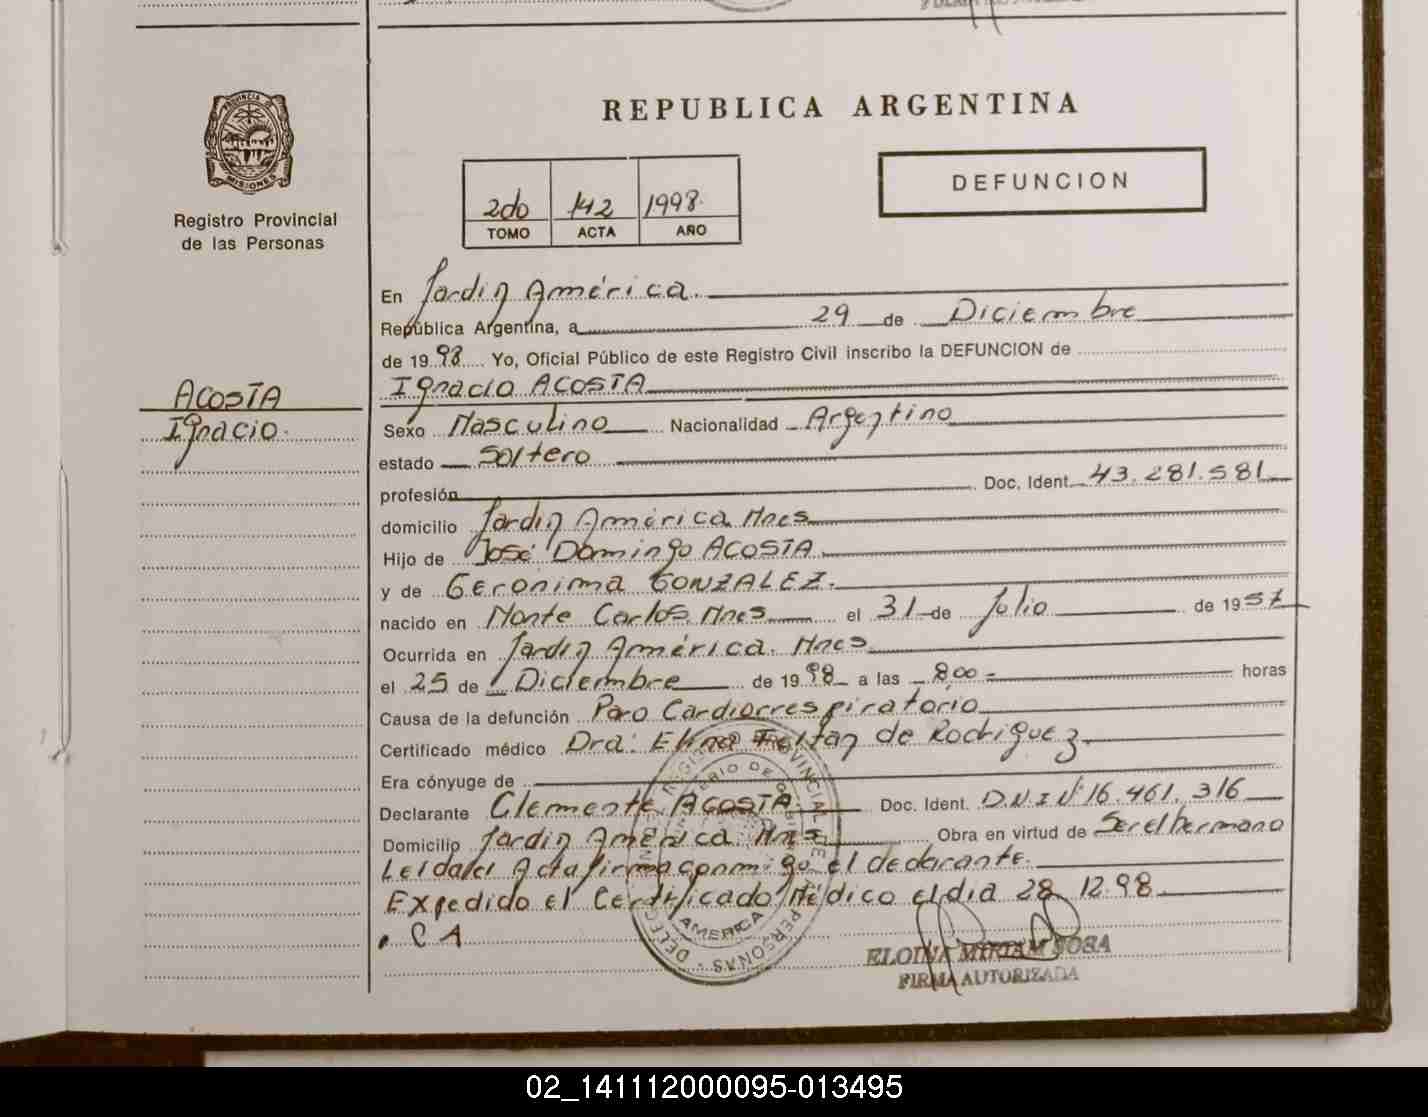 PROVINCIA DE
MISIONES
Registro Provincial
de las Personas
ACOSTA
Ignacio.
REPUBLICA ARGENTINA
2do 142 1998.
TOMO ACTA AÑO
DEFUNCION
En Jardin América.
República Argentina, a 29 de Diciembre
de 1998 Yo, Oficial Público de este Registro Civil inscribo la DEFUNCION de
Ignacio ACOSTA
Sexo Masculino Nacionalidad Argentino
estado Soltero
profesión Doc. Ident. 43.281.581
domicilio Jardin América. Mnes
Hijo de José Domingo ACOSTA
y de Geronima GONZALEZ.
nacido en Monte Carlos. Mnes el 31 de Julio de 1957
Ocurrida en Jardin América. Mnes
el 25 de Diciembre de 1998 a las 8,00 horas
Causa de la defunción Paro Cardiorrespiratorio
Certificado médico Dra: Elina de Rodriguez
Era cónyuge de
Declarante Clemente ACOSTA Doc. Ident. D.N.I Nº 16.461.316
Domicilio Jardin América. Mnes Obra en virtud de Ser el hermano
Leida el Acta firma conmigo el declarante.
Expedido el Certificado Médico el dia 28 12.98
C A
AMERICA
PERSONAS
ELOINA MIRIAM SOSA
FIRMA AUTORIZADA
02_141112000095-013495